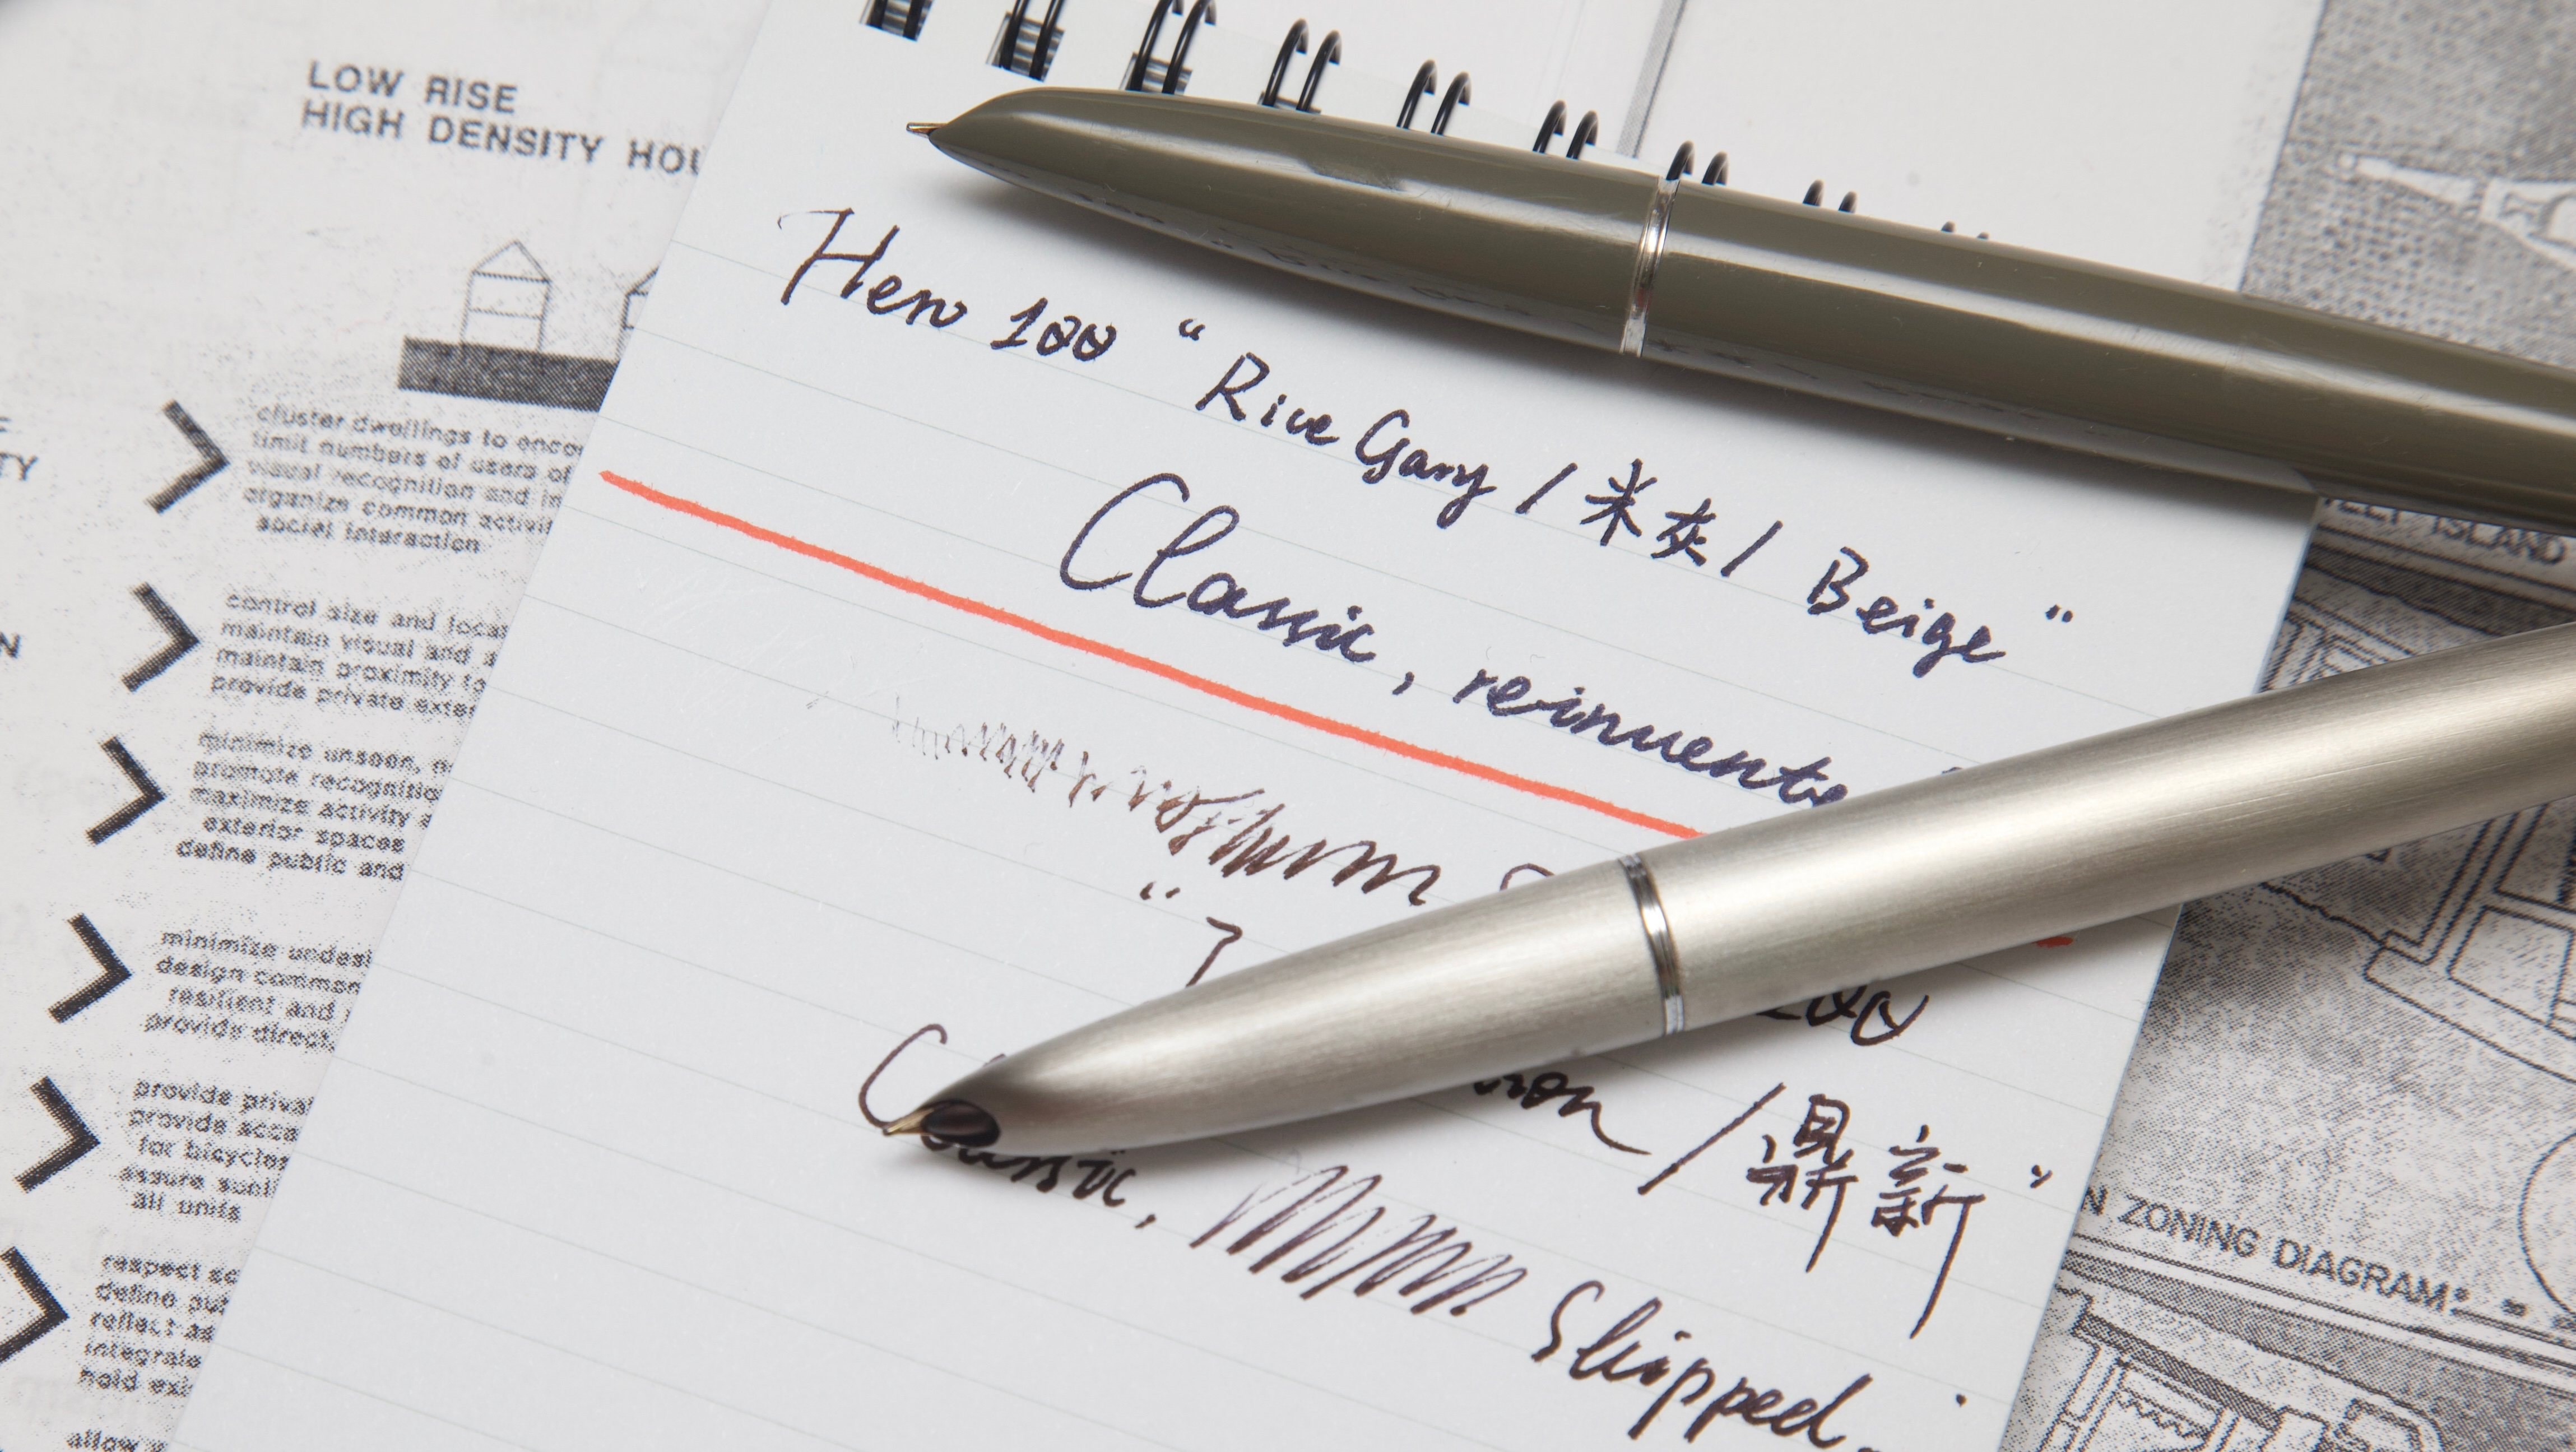 LOW RISE
HIGH DENSITY HOU
cluster dwellings to enco
limit numbers of users of
visual recognition and in
organize common activi
social interaction
control size and loca
maintain visual and a
maintain proximity to
provide private exte
minimize unseen, n
promote recognitio
maximize activity
exterior spaces
define public and
minimize undesi
design common
resilient and
provide direct
provide priva
provide acce
for bicycles
assure sunl
all units
respect sc
define pub
reflect as
integrate
hold exi
allow
TY
N
Hero 100 "Rice Gary / 米灰 / Beige"
Classic, reinvente
100
/ 鼎新"
Classic, Skipped.
ISLAND
N ZONING DIAGRAM